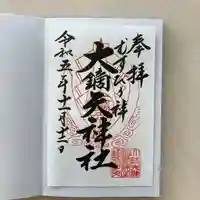 奉拝
むすび詣
大鏑矢神社
令和五年十一月十二日